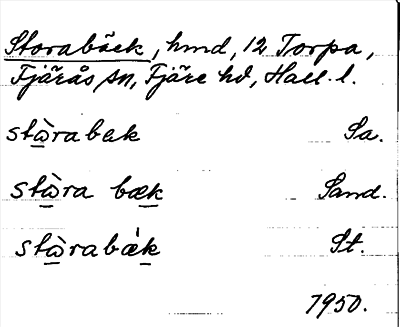 Storabäck, hmd, 12 Torpa,
Fjärås sn, Fjäre hd, Hall. l.
stὼrabæk Sa.
stὼra bæk Sand.
stὼrabǽk St.
1950.